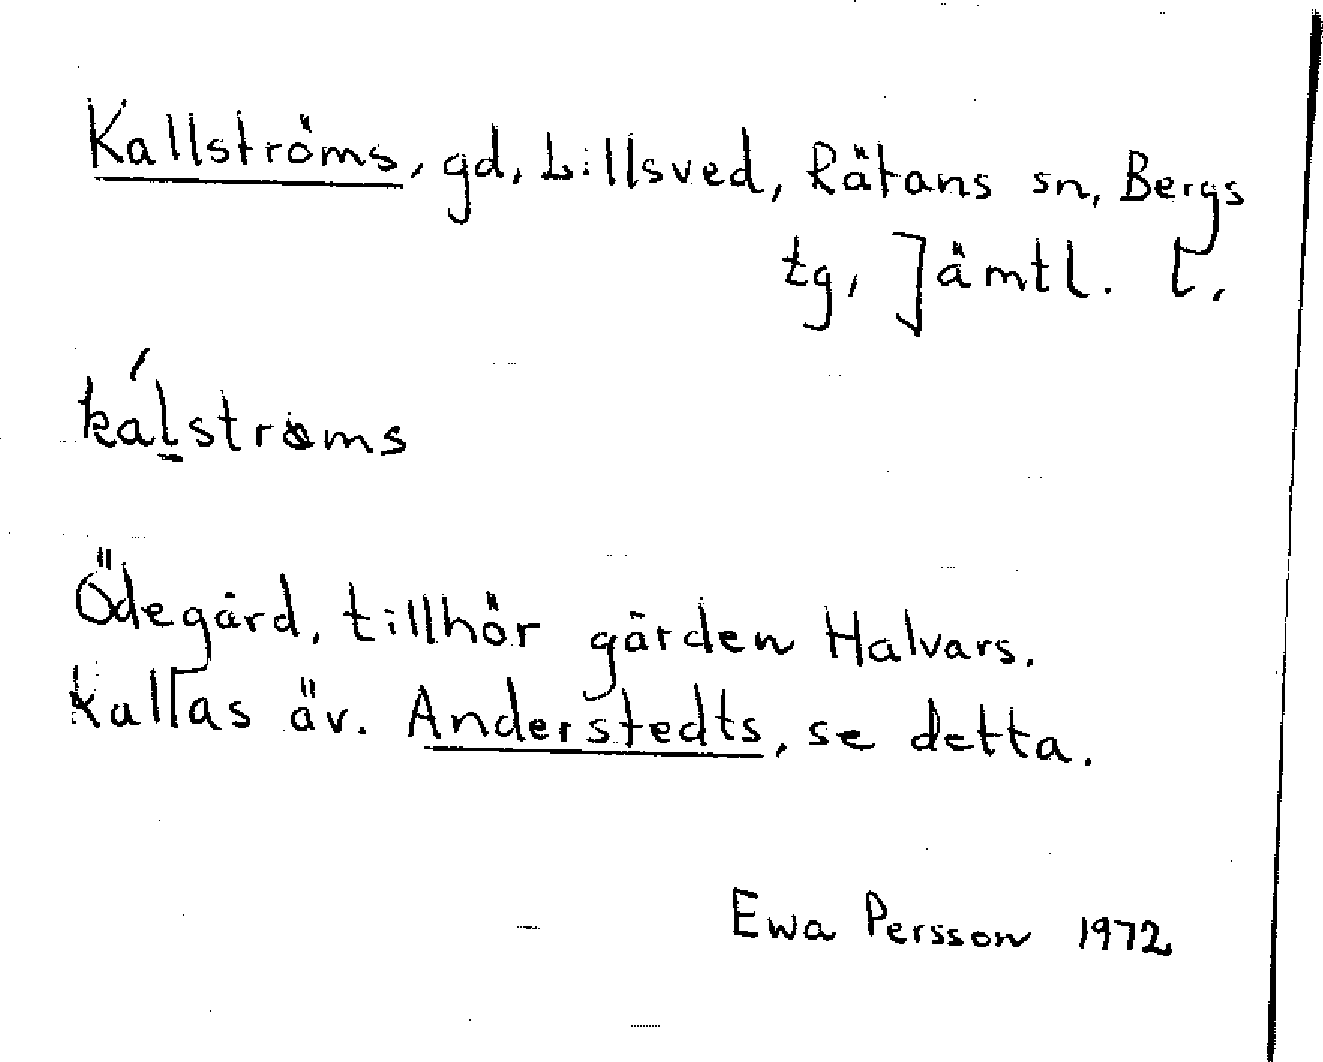 Kallströms, gd, Lillsved, Rätans sn, Bergs
tg, Jämtl. l.
kálstrøms
Ödegård, tillhör gården Halvars.
Kallas äv. Anderstedts, se detta.
Ewa Persson 1972